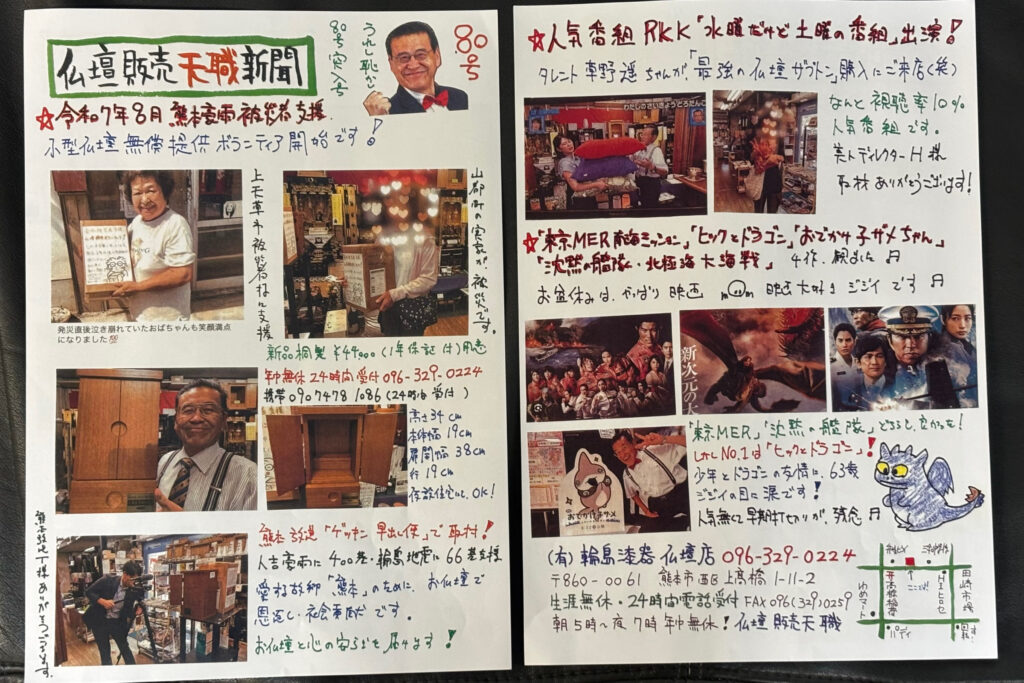 仏壇販売天職新聞
80号
うれし恥かし
80号突入号
☆令和7年8月 熊本豪雨被災者支援
小型仏壇無償提供ボランティア開始です!
上天草市被災者様に支援
山都町の実家が被災です。
発災直後泣き崩れていたおばちゃんも笑顔満点
になりました💯
新品桐製 ¥44,900(1年保証付)用意
年中無休24時間受付 096-329-0224
携帯 090 7478 1086 (24時間受付)
高さ34cm
本体幅19cm
扉開幅38cm
奥行19cm
仮設住宅にOK!
熊本放送"ゲツキン早出し便"で取材!
人吉豪雨に400基・輪島地震に66基支援
愛する故郷「熊本」のために、お仏壇で
恩返し・社会貢献です。
お仏壇と心の安らぎを届けます!
様ありがとうございます。
☆人気番組RKK「水曜だけど土曜の番組」出演!
タレント草野遥ちゃんが「最強の仏壇ザブトン」購入にご来店(笑)
わたしのさいきょうどうたんこ
なんと視聴率10%
人気番組です。
美人ディレクターH様
取材ありがとうございます!
☆「東京MER南海ミッション」「ヒックとドラゴン」「おでかけ子ザメちゃん」
「沈黙の艦隊・北極海大海戦」 4作、観ました♫
お盆休みは、やっぱり映画 映画大好きジジイです♫
新次元の
おでかけ子ザメ
「東京MER」「沈黙の艦隊」どちらも、良かった!
しかしNo.1は「ヒックとドラゴン」!
少年とドラゴンの友情に、63歳
ジジイの目に涙です!
人気無くて早期打切りが、残念♫
(有)輪島漆器仏壇店 096-329-0224
〒860-0061 熊本市西区上高橋1-11-2
生涯無休・24時間電話受付 FAX096(329)0259
朝5時〜夜7時年中無休!仏壇販売天職
ここだよ!
HIヒロセ
田崎市場
高橋稲荷
ゆめマート